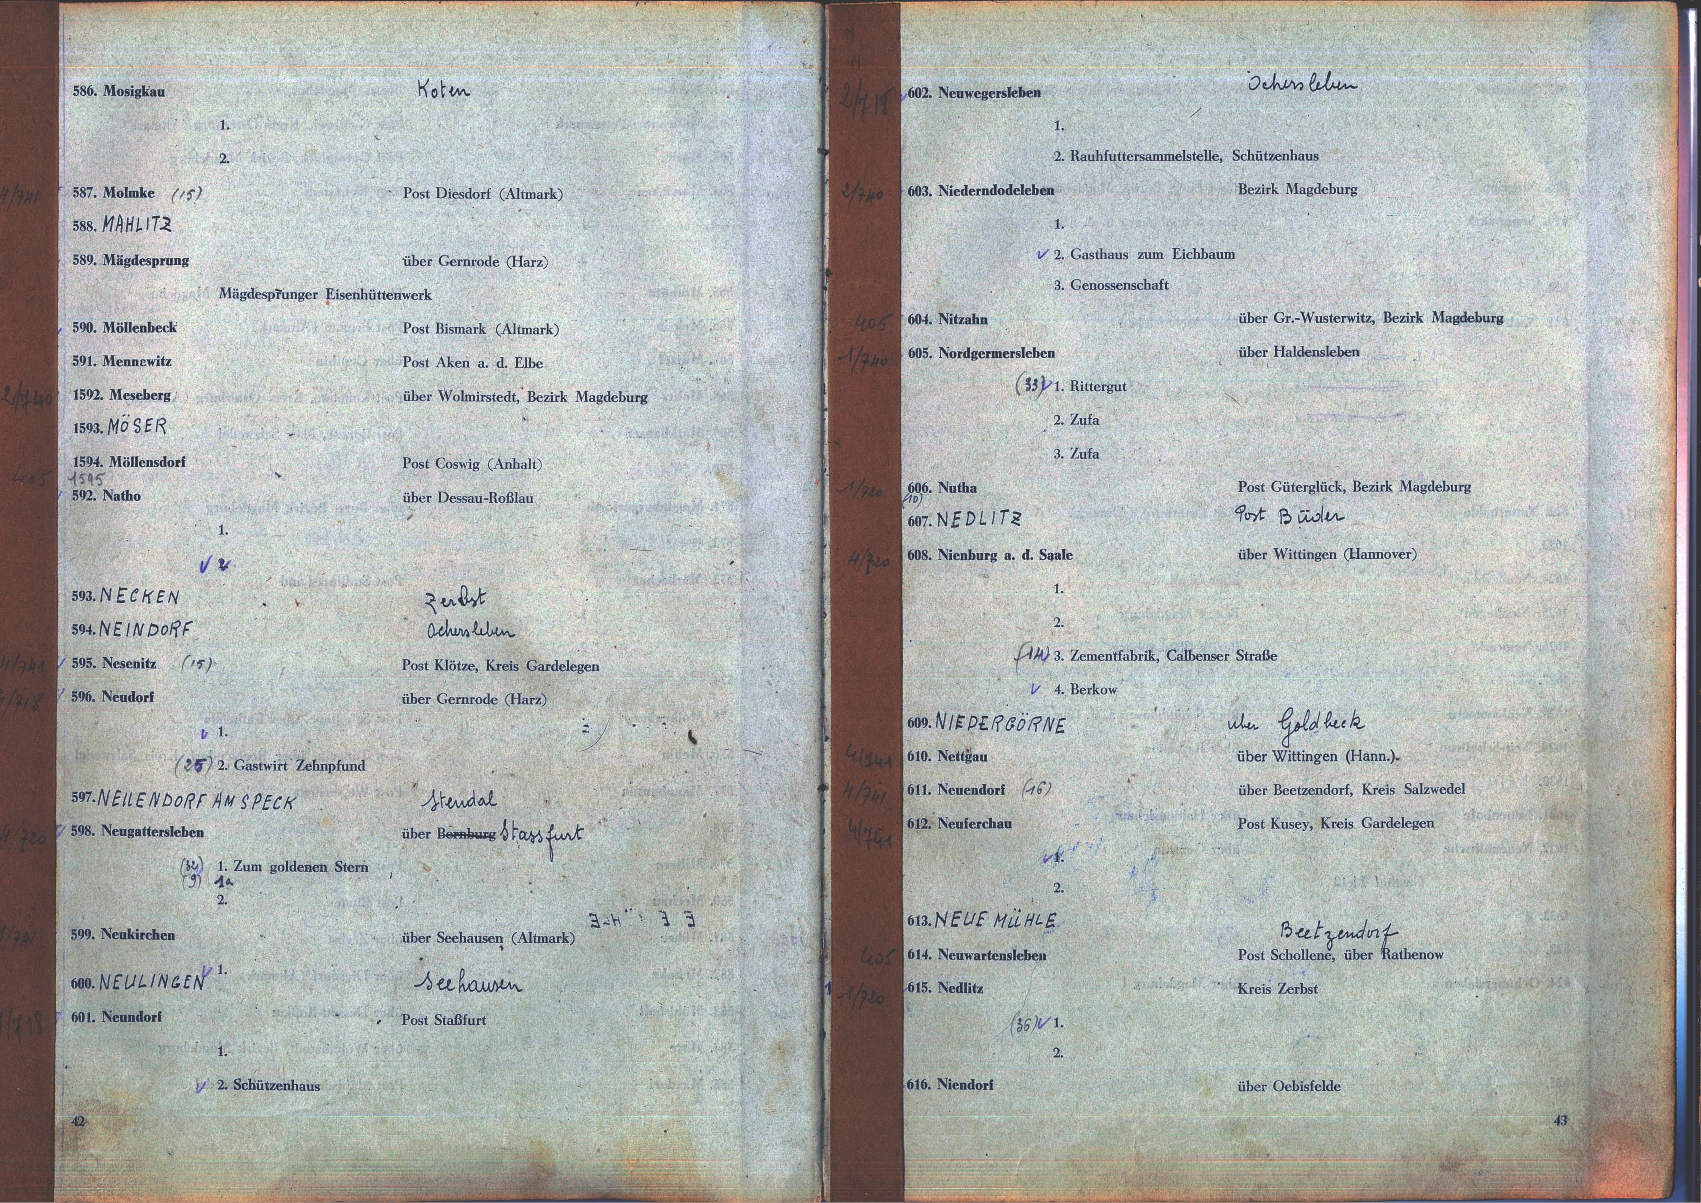 586. Mosigkau Koten
1.
2.
4/741 587. Molmke (15) Post Diesdorf (Altmark)
588. MAHLITZ
589. Mägdesprung über Gernrode (Harz)
Mägdesprunger Eisenhüttenwerk
590. Möllenbeck Post Bismark (Altmark)
591. Mennewitz Post Aken a. d. Elbe
2/740 1592. Meseberg über Wolmirstedt, Bezirk Magdeburg
1593. MÖSER
1594. Möllensdorf Post Coswig (Anhalt)
1595
405 592. Natho über Dessau-Roßlau
1.
√ 2.
593. NECKEN Zerbst
594. NEINDORF Ochersleben
4/741 √ 595. Nesenitz (15) Post Klötze, Kreis Gardelegen
2/718 596. Neudorf über Gernrode (Harz)
√ 1.
(25) 2. Gastwirt Zehnpfund
597. NEUENDORF AM SPECK Stendal
4/720 √ 598. Neugattersleben über Bernburg Stassfurt
(32) 1. Zum goldenen Stern
(9) 1a
2.
599. Neukirchen über Seehausen (Altmark)
√ 1.
600. NEULINGEN Seehausen
1/718 601. Neundorf Post Staßfurt
1.
√ 2. Schützenhaus
42
2/718 602. Neuwegersleben Ochersleben
1.
2. Rauhfuttersammelstelle, Schützenhaus
2/740 603. Niederndodeleben Bezirk Magdeburg
1.
√ 2. Gasthaus zum Eichbaum
3. Genossenschaft
405 604. Nitzahn über Gr.-Wusterwitz, Bezirk Magdeburg
1/740 605. Nordgermersleben über Haldensleben
(33) √ 1. Rittergut
2. Zufa
3. Zufa
1/720 606. Nutha Post Güterglück, Bezirk Magdeburg
(10)
607. NEDLITZ Post Büden
4/720 608. Nienburg a. d. Saale über Wittingen (Hannover)
1.
2.
(14) 3. Zementfabrik, Calbenser Straße
√ 4. Berkow
609. NIEDERGÖRNE über Goldbeck
4/741 610. Nettgau über Wittingen (Hann.).
4/741 611. Neuendorf (16) über Beetzendorf, Kreis Salzwedel
4/741 612. Neuferchau Post Kusey, Kreis Gardelegen
√ 1.
2.
613. NEUE MÜHLE Beetzendorf
405 614. Neuwartensleben Post Schollene, über Rathenow
1/720 615. Nedlitz Kreis Zerbst
(36) √ 1.
2.
616. Niendorf über Oebisfelde
43